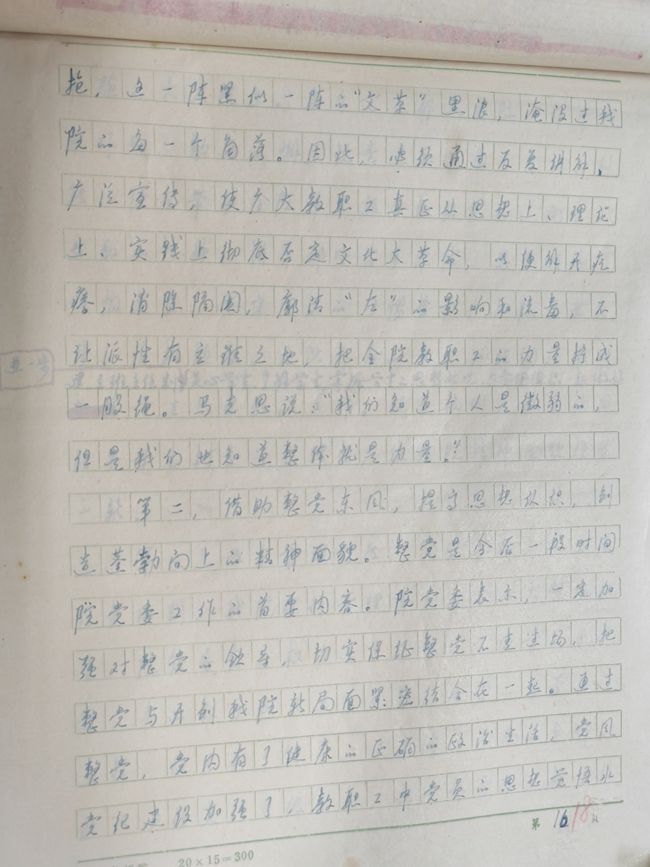 拖，这一阵黑似一阵的“文革”黑浪，淹没过我
院的每一个角落。因此，必须通过反复讲解、
广泛宣传，使广大教职工真正从思想上、理论
上、实践上彻底否定文化大革命，以便
消除隔阂，廓清“左”的影响和流毒，不
让派性有立锥之地，把全院教职工的力量拧成
一股绳。马克思说：“我们知道个人是微弱的，
但是我们也知道整体就是力量。”
第二，借助整党东风，提高思想认识，创
造蓬勃向上的精神面貌。整党是今后一段时间
院党委工作的首要内容。院党委表示，一定加
强对整党的领导，切实保证整党不走过场，把
整党与开创我院新局面紧密结合在一起。通过
整党，党内有了健康的正确的政治生活，党风
党纪建设加强了，教职工中党员的思想觉悟水
第 16 18 页
20×15=300